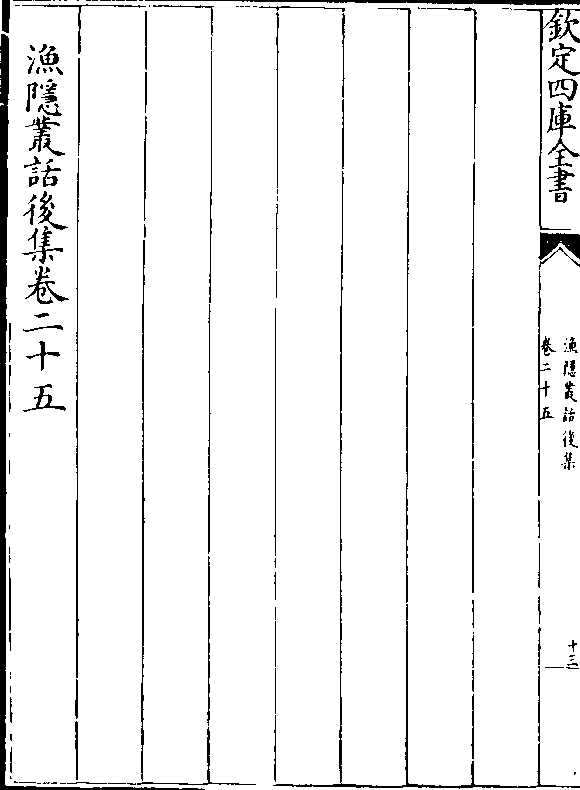 欽定四庫全書
漁隱叢話後集
卷二十五
十三
漁隱叢話後集卷二十五